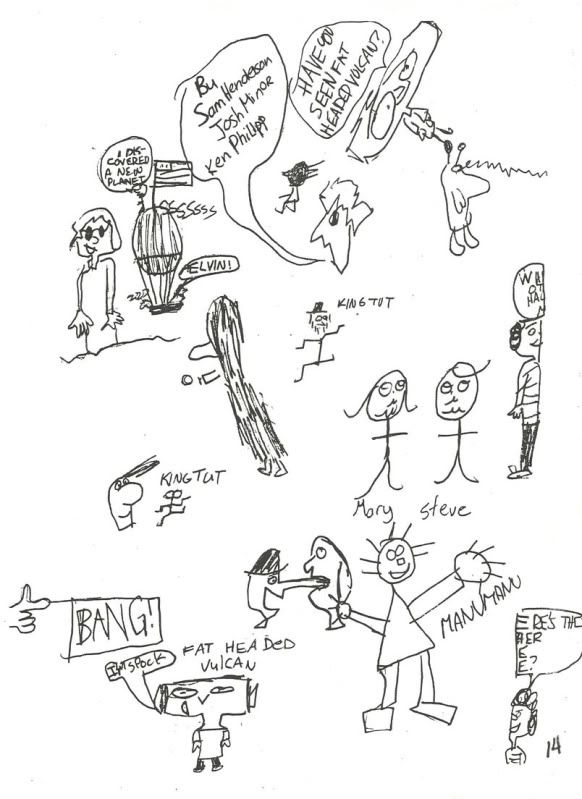 By
Sam Henderson
Josh Minor
Ken Phillipp
HAVE YOU
SEEN FAT
HEADED VULCAN?
I DIS-
COVERED
A NEW
PLANET
SSSSSSS
ELVIN!
KING TUT
KING TUT
Mary
Steve
MANUMANU
BANG!
FAT HEADED
VULCAN
14